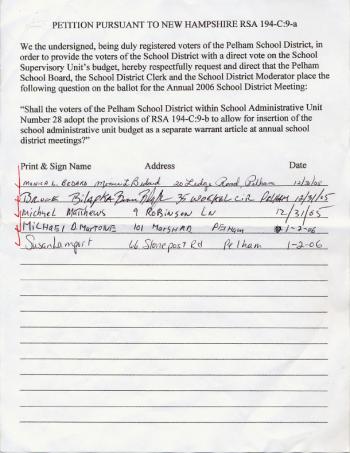 PETITION PURSUANT TO NEW HAMPSHIRE RSA 194-C:9-a
We the undersigned, being duly registered voters of the Pelham School District, in
order to provide the voters of the School District with a direct vote on the School
Supervisory Unit's budget, hereby respectfully request and direct that the Pelham
School Board, the School District Clerk and the School District Moderator place the
following question on the ballot for the Annual 2006 School District Meeting:
"Shall the voters of the Pelham School District within School Administrative Unit
Number 28 adopt the provisions of RSA 194-C:9-b to allow for insertion of the
school administrative unit budget as a separate warrant article at annual school
district meetings?"
Print & Sign Name Address Date
MONICA L. BEDARD Monica L Bedard 20 Ledge Road, Pelham 12/31/05
BRUCE BILAPKA 35 CIR PELHAM 12/31/05
Michael Matthews 9 ROBINSON LN 12/31/05
MICHAEL D. MARTONE 101 MARSH RD PELHAM 1-2-06
Susan Lamport 66 Stonepost Rd Pelham 1-2-06